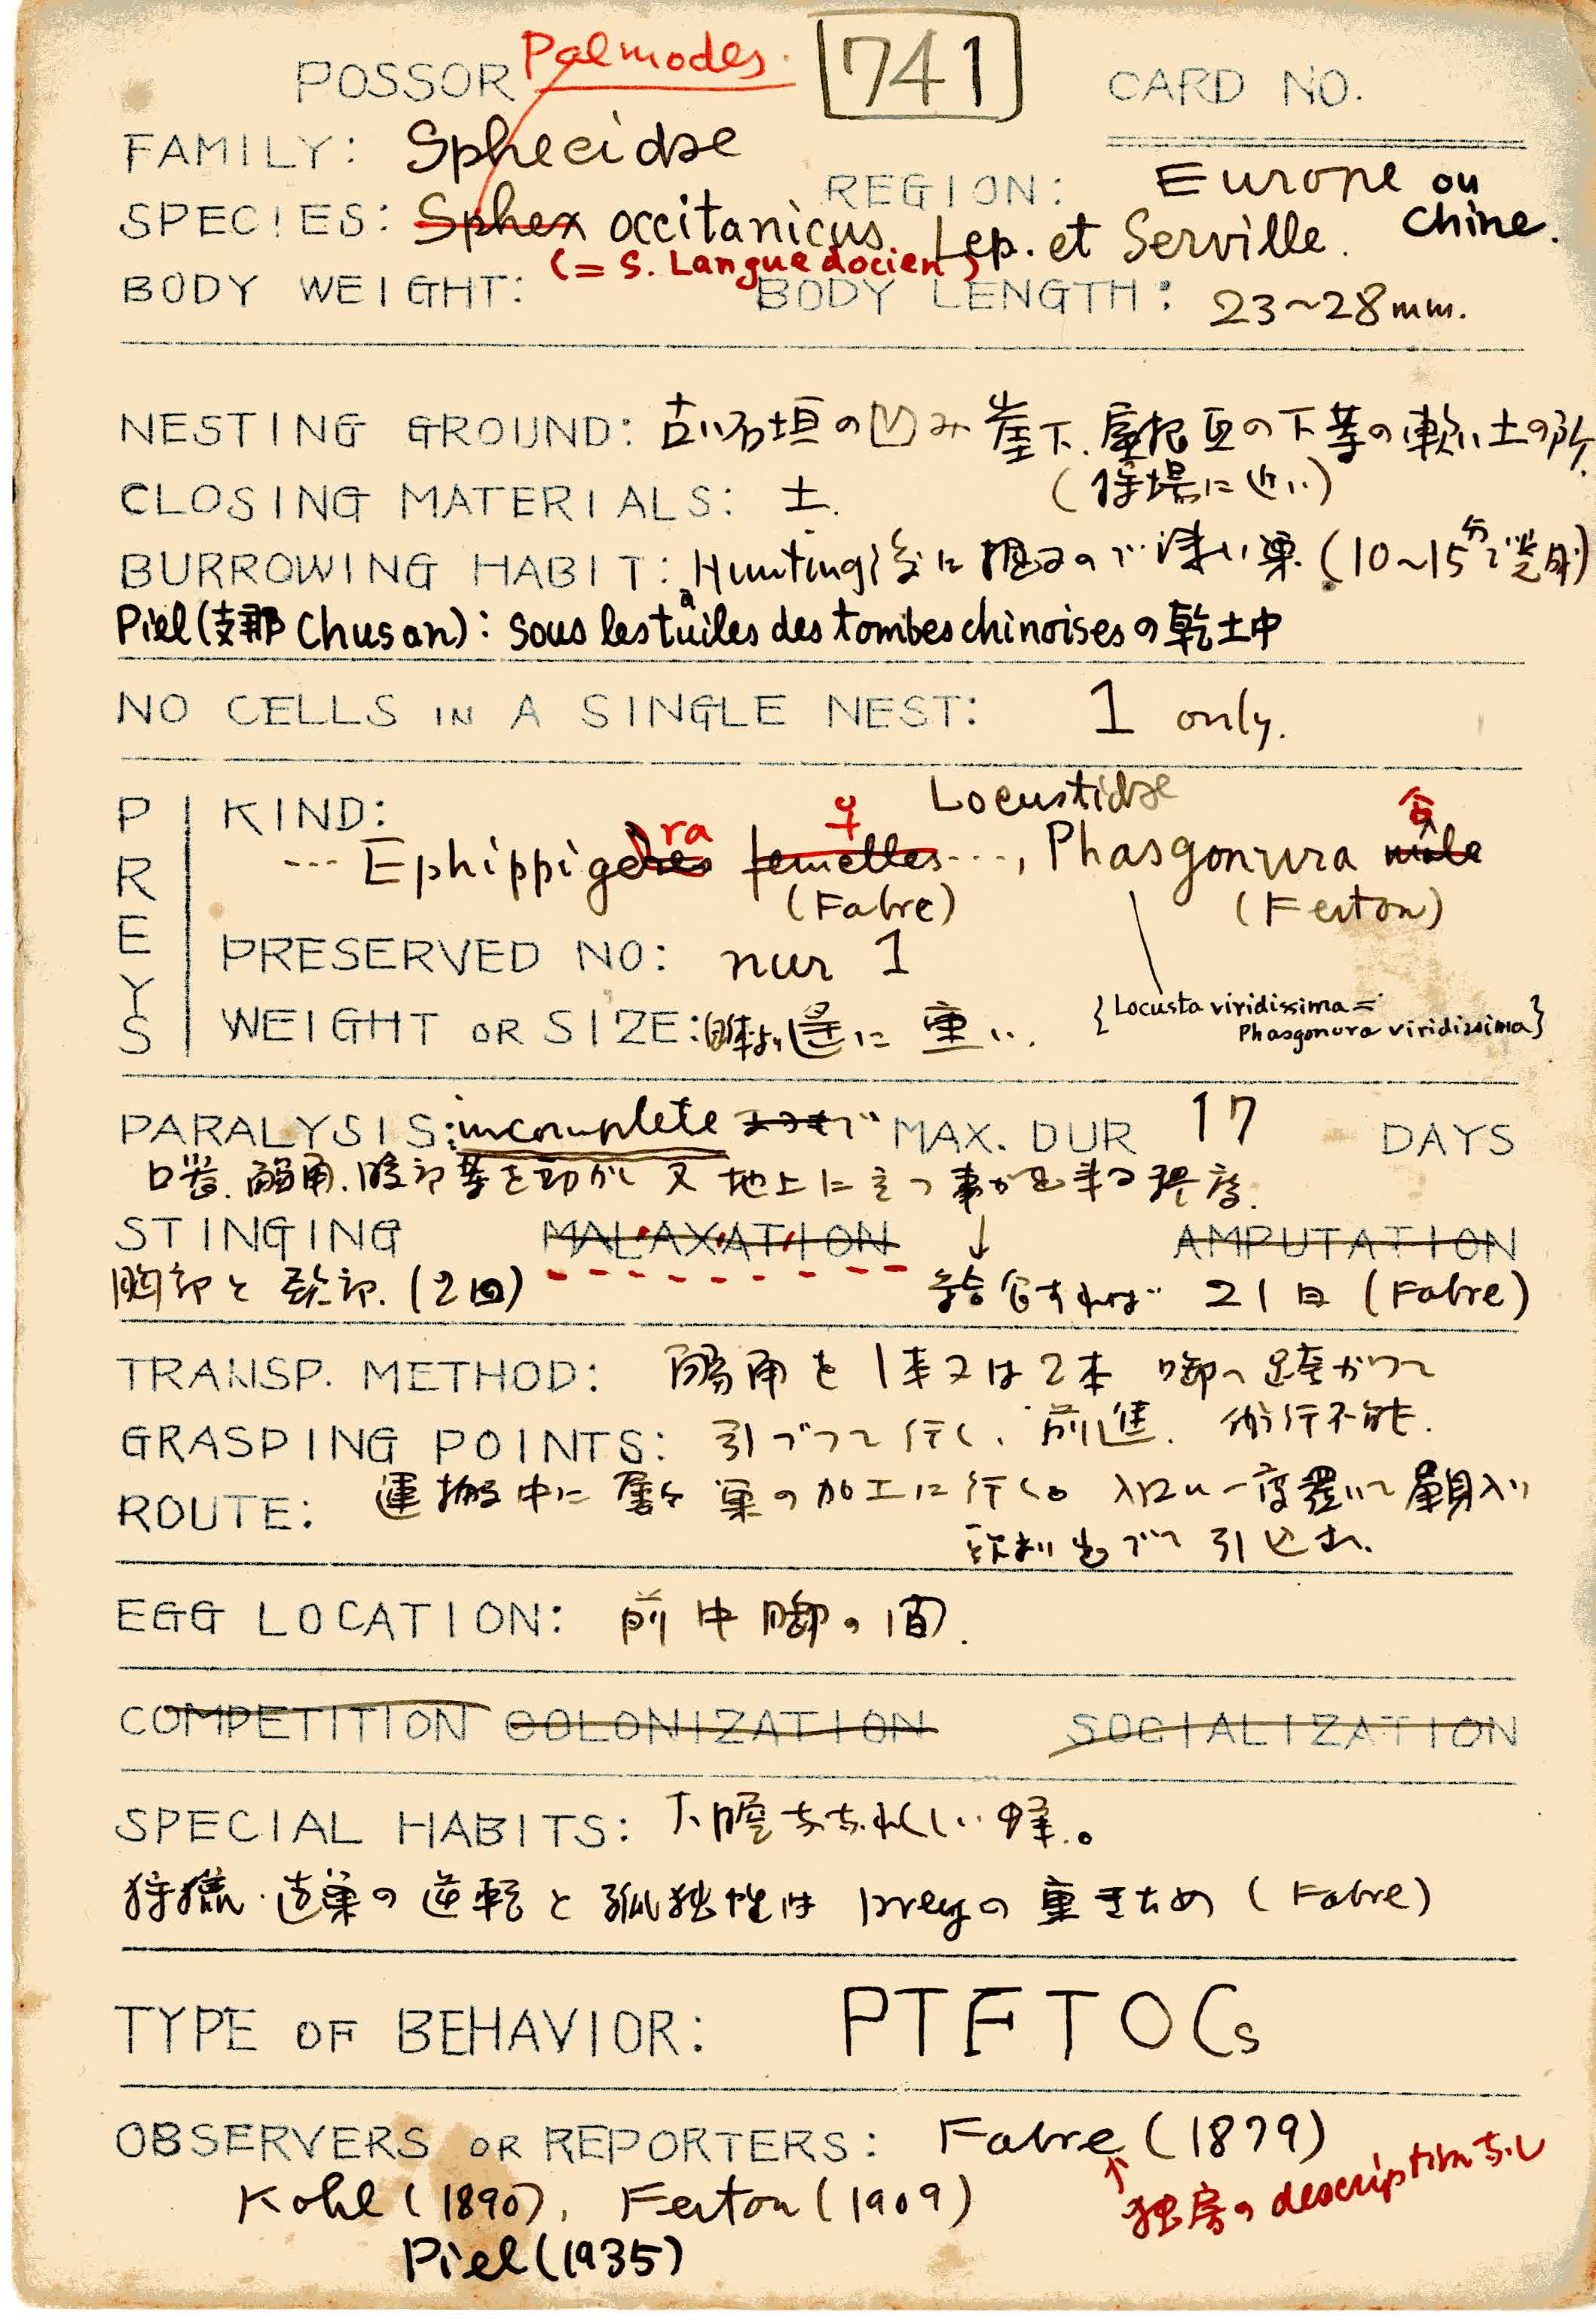 Palmodes.
POSSOR 741 CARD NO.
FAMILY: Sphecidae
REGION: Europe ou Chine.
SPECIES: Sphex occitanicus Lep. et Serville.
(= S. Languedocien)
BODY WEIGHT: BODY LENGTH: 23~28mm.
NESTING GROUND: 古い石垣の凹み 崖下. 屋根瓦の下等の軟い土の所.
CLOSING MATERIALS: 土. (猟場に近い)
BURROWING HABIT: Hunting後に掘るので浅い巣 (10~15分で完成)
Piel (支那 Chusan): sous les tuiles des tombes chinoises の乾土中
NO CELLS IN A SINGLE NEST: 1 only.
PREYS
KIND: Locustidae
--- Ephippigera ♀ femelles ---, Phasgonura mâle ♂
(Fabre) (Ferton)
PRESERVED NO: nur 1
{Locusta viridissima =
Phasgonura viridissima}
WEIGHT OR SIZE: 蜂より遥に重い.
PARALYSIS: incomplete MAX. DUR 17 DAYS
口器. 触角. 腹部等を動かし又地上に立つ事が出来る程度.
STINGING MALAXATION ↓ AMPUTATION
胸部と頸部. (2回) 給食すれば 21日 (Fabre)
TRANSP. METHOD: 触角を1本又は2本 脚へ跨がって
GRASPING POINTS: 引づって行く. 前進. 飛行不能.
ROUTE: 運搬中に屡々巣の加工に行く。入口に一度置いて単身入り
頭より出でて引込む.
EGG LOCATION: 前中脚の間.
COMPETITION COLONIZATION SOCIALIZATION
SPECIAL HABITS: 大膽 蜂。
狩猟・造巣の逆転と孤独性は preyの重きため (Fabre)
TYPE OF BEHAVIOR: PTFTOCs
OBSERVERS OR REPORTERS: Fabre (1879)
↑
独房の description なし
Kohl (1890), Ferton (1909)
Piel (1935)